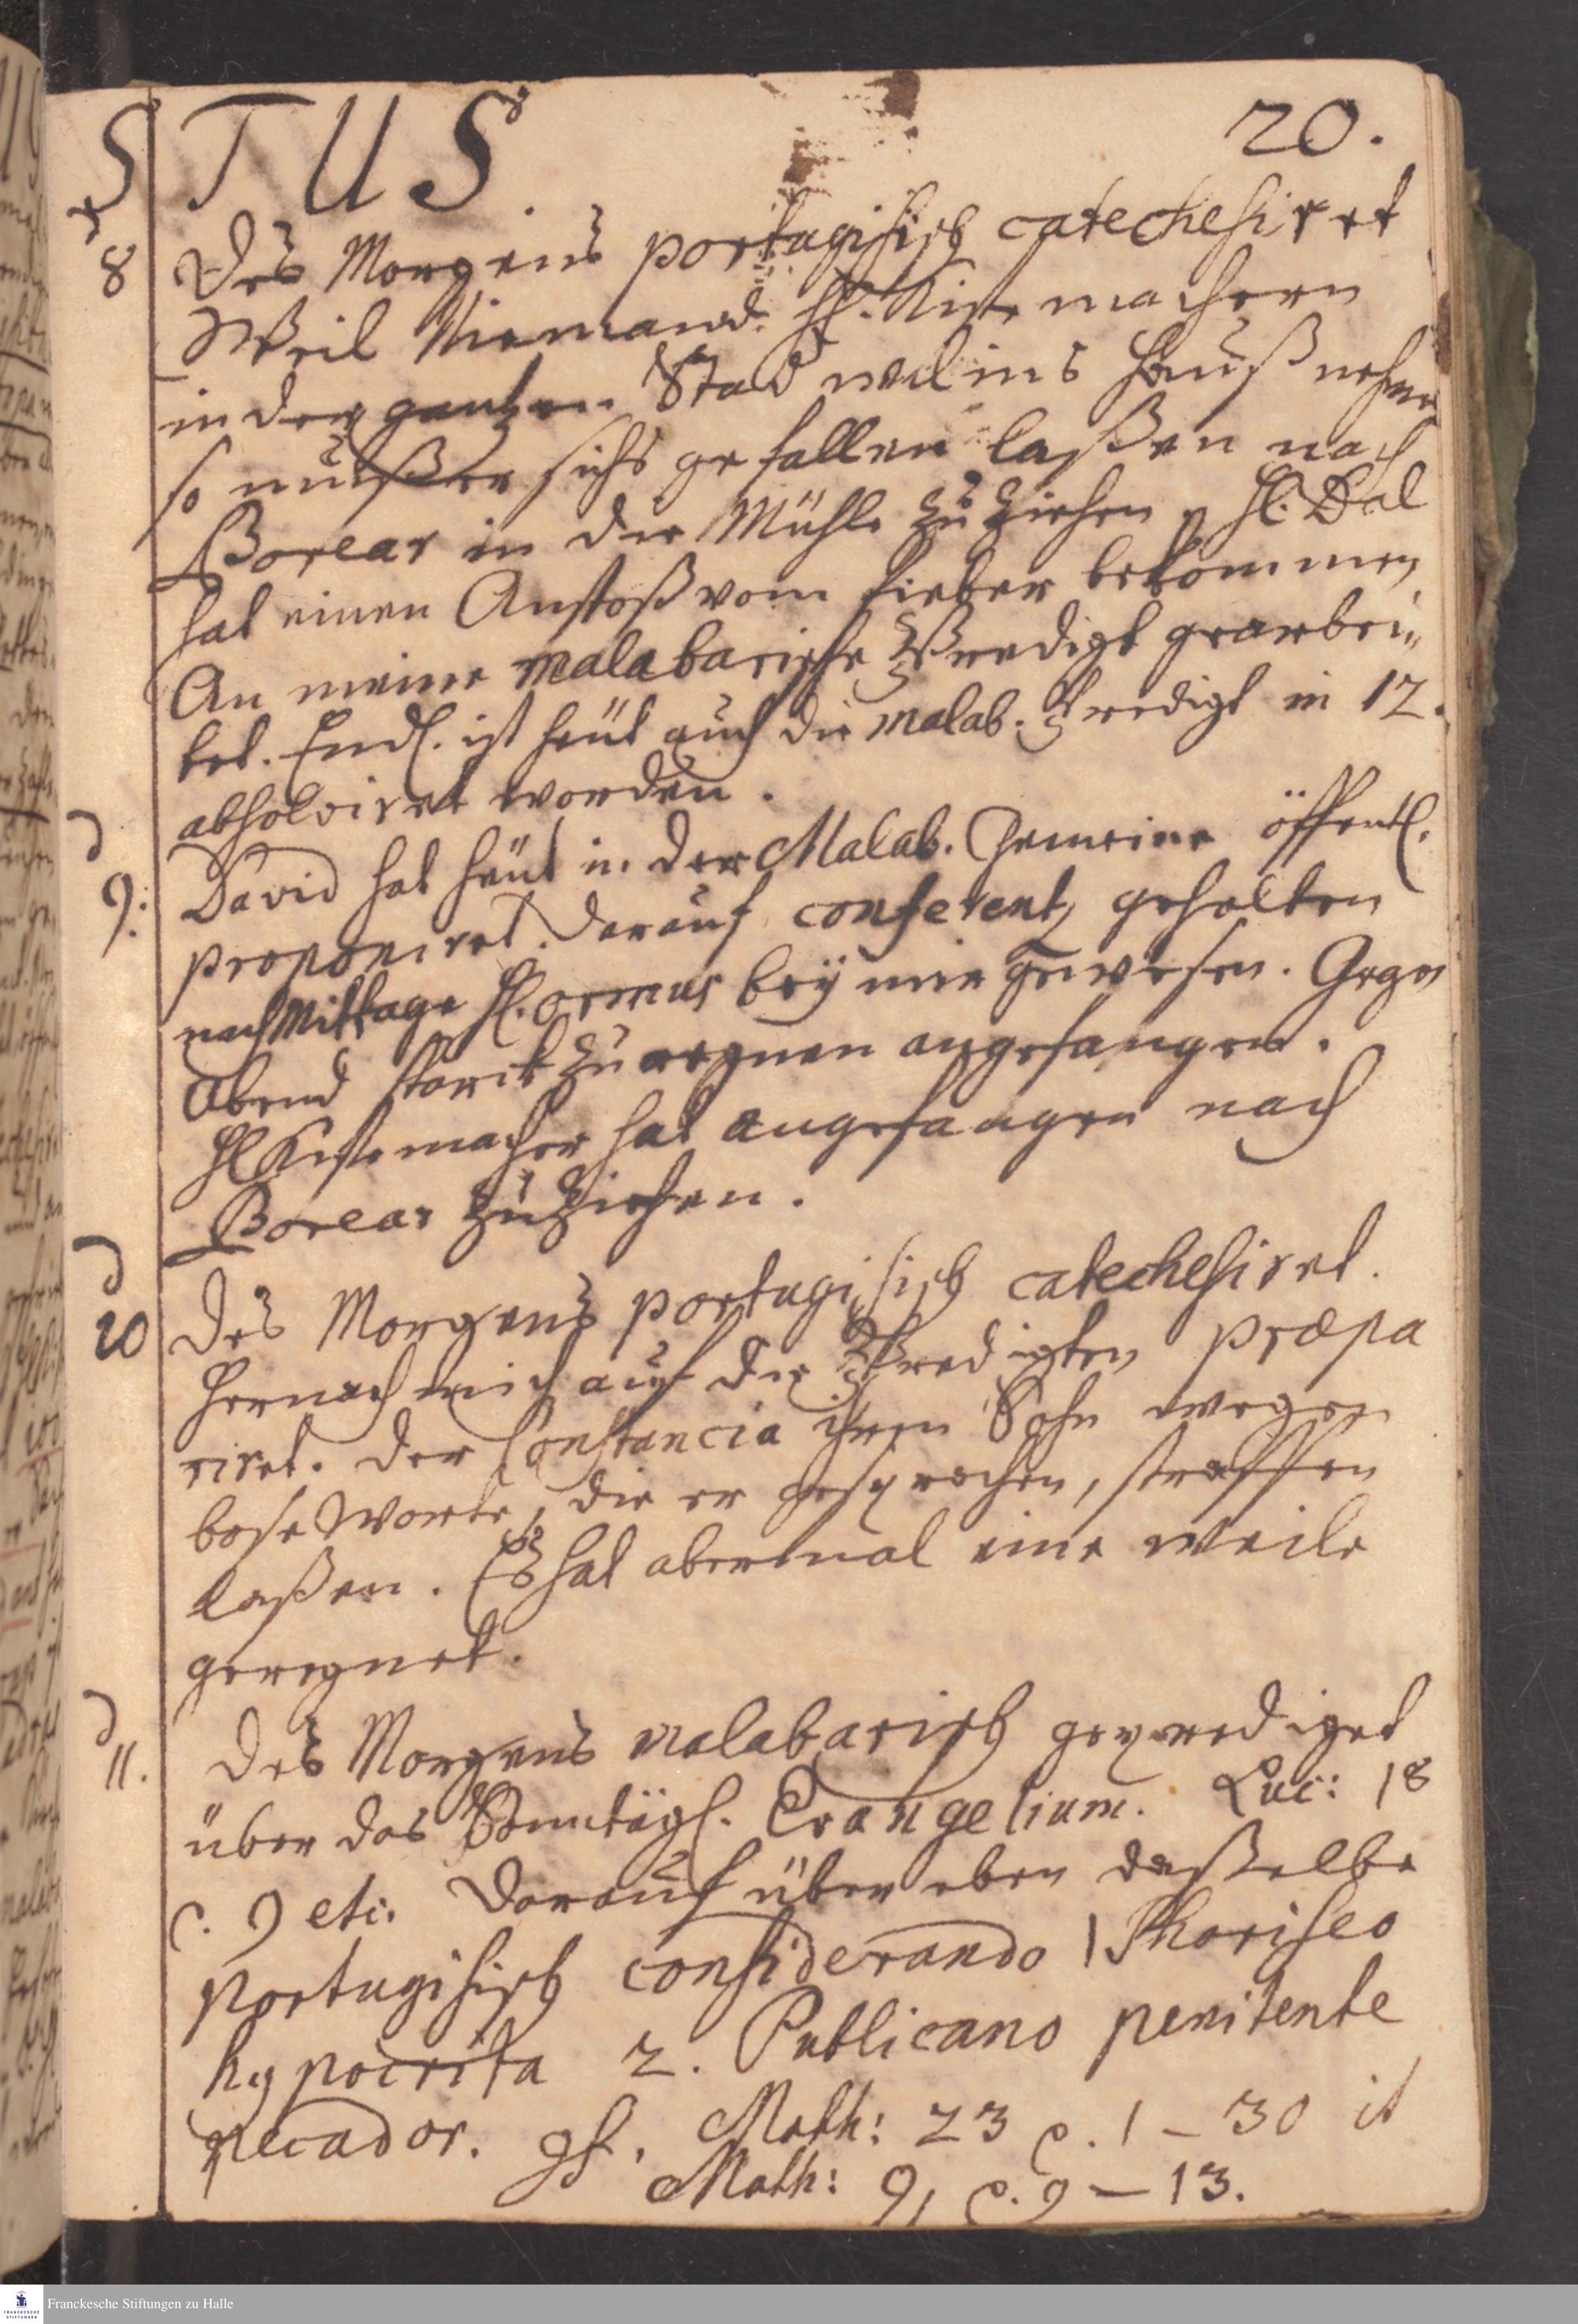 STUS 20.
8 Des Morgens portugisisch catechesirt
Weil Niemand H. Kistemachern
in der gantzen Stad wil ins Hauß nehmen
so muß er sichs gefallen laßen nach
Borear in der Mühle zu ziehen H. Dal
hat einen Anstoß vom Fieber bekommen
An meine malabarische Predigt gearbei„
tet. Endl. ist heut auch die malab. Predigt in 12.
absolviret worden.
9. David hat heut in der Malab. Gemeine öffentl.
proponiret. Darauf conferentz gehalten
nach Mittage H. Ormus bey mir gewesen. Gegen
Abend starck zu regnen angefangen.
H. Kistemacher hat angefangen nach
Borear zu ziehen.
10 Des Morgens portugisisch catechesiret.
Hernach mich auf die Predigten præpa
riret. Der Constancia ihren Sohn wegen
bose Worte, die er gesprochen, straffen
laßen. Es hat abermal eine weile
geregnet.
11. Des Morgens malabarisch geprediget
über das Sonntägl. Evangelium. Luc: 18
v. 9 etc. Darauf über eben daßelbe
portugisisch considerando 1 Phariseo
hypocrita 2. Publicano penitente
pecador. Math: 23 v. 1 – 30 it
Math: 9, v. 9 – 13.
Franckesche Stiftungen zu Halle